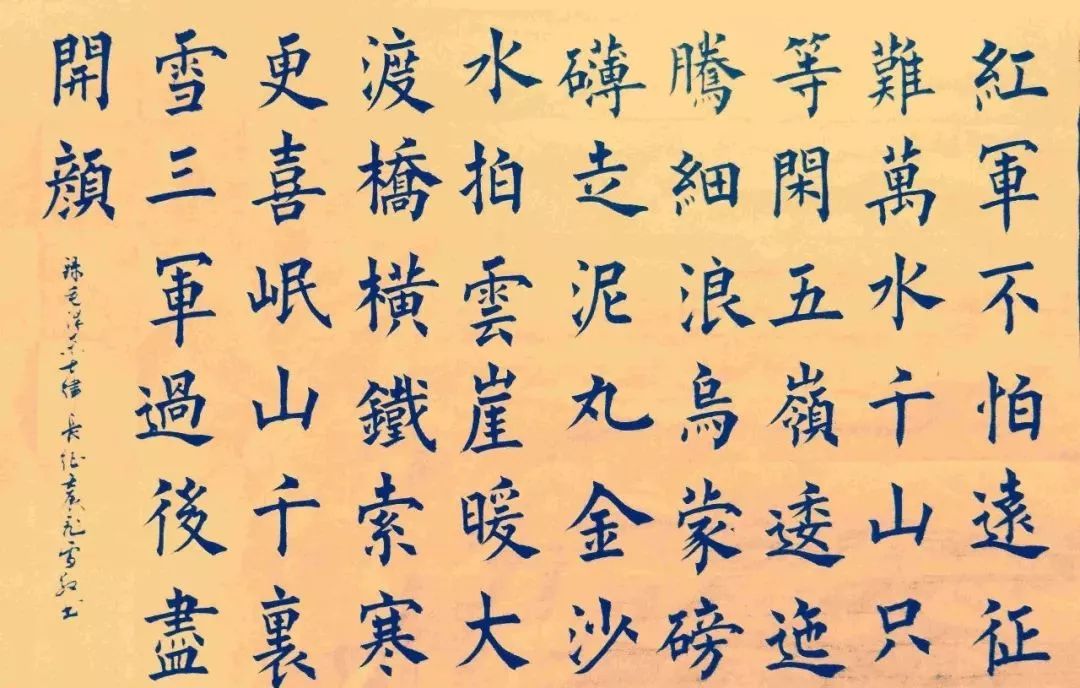 紅軍不怕遠征
難萬水千山只
等閑五嶺逶迤
騰細浪烏蒙磅
礴走泥丸金沙
水拍雲崖暖大
渡橋橫鐵索寒
更喜岷山千裏
雪三軍過後盡
開顏
録毛泽东七律 長征